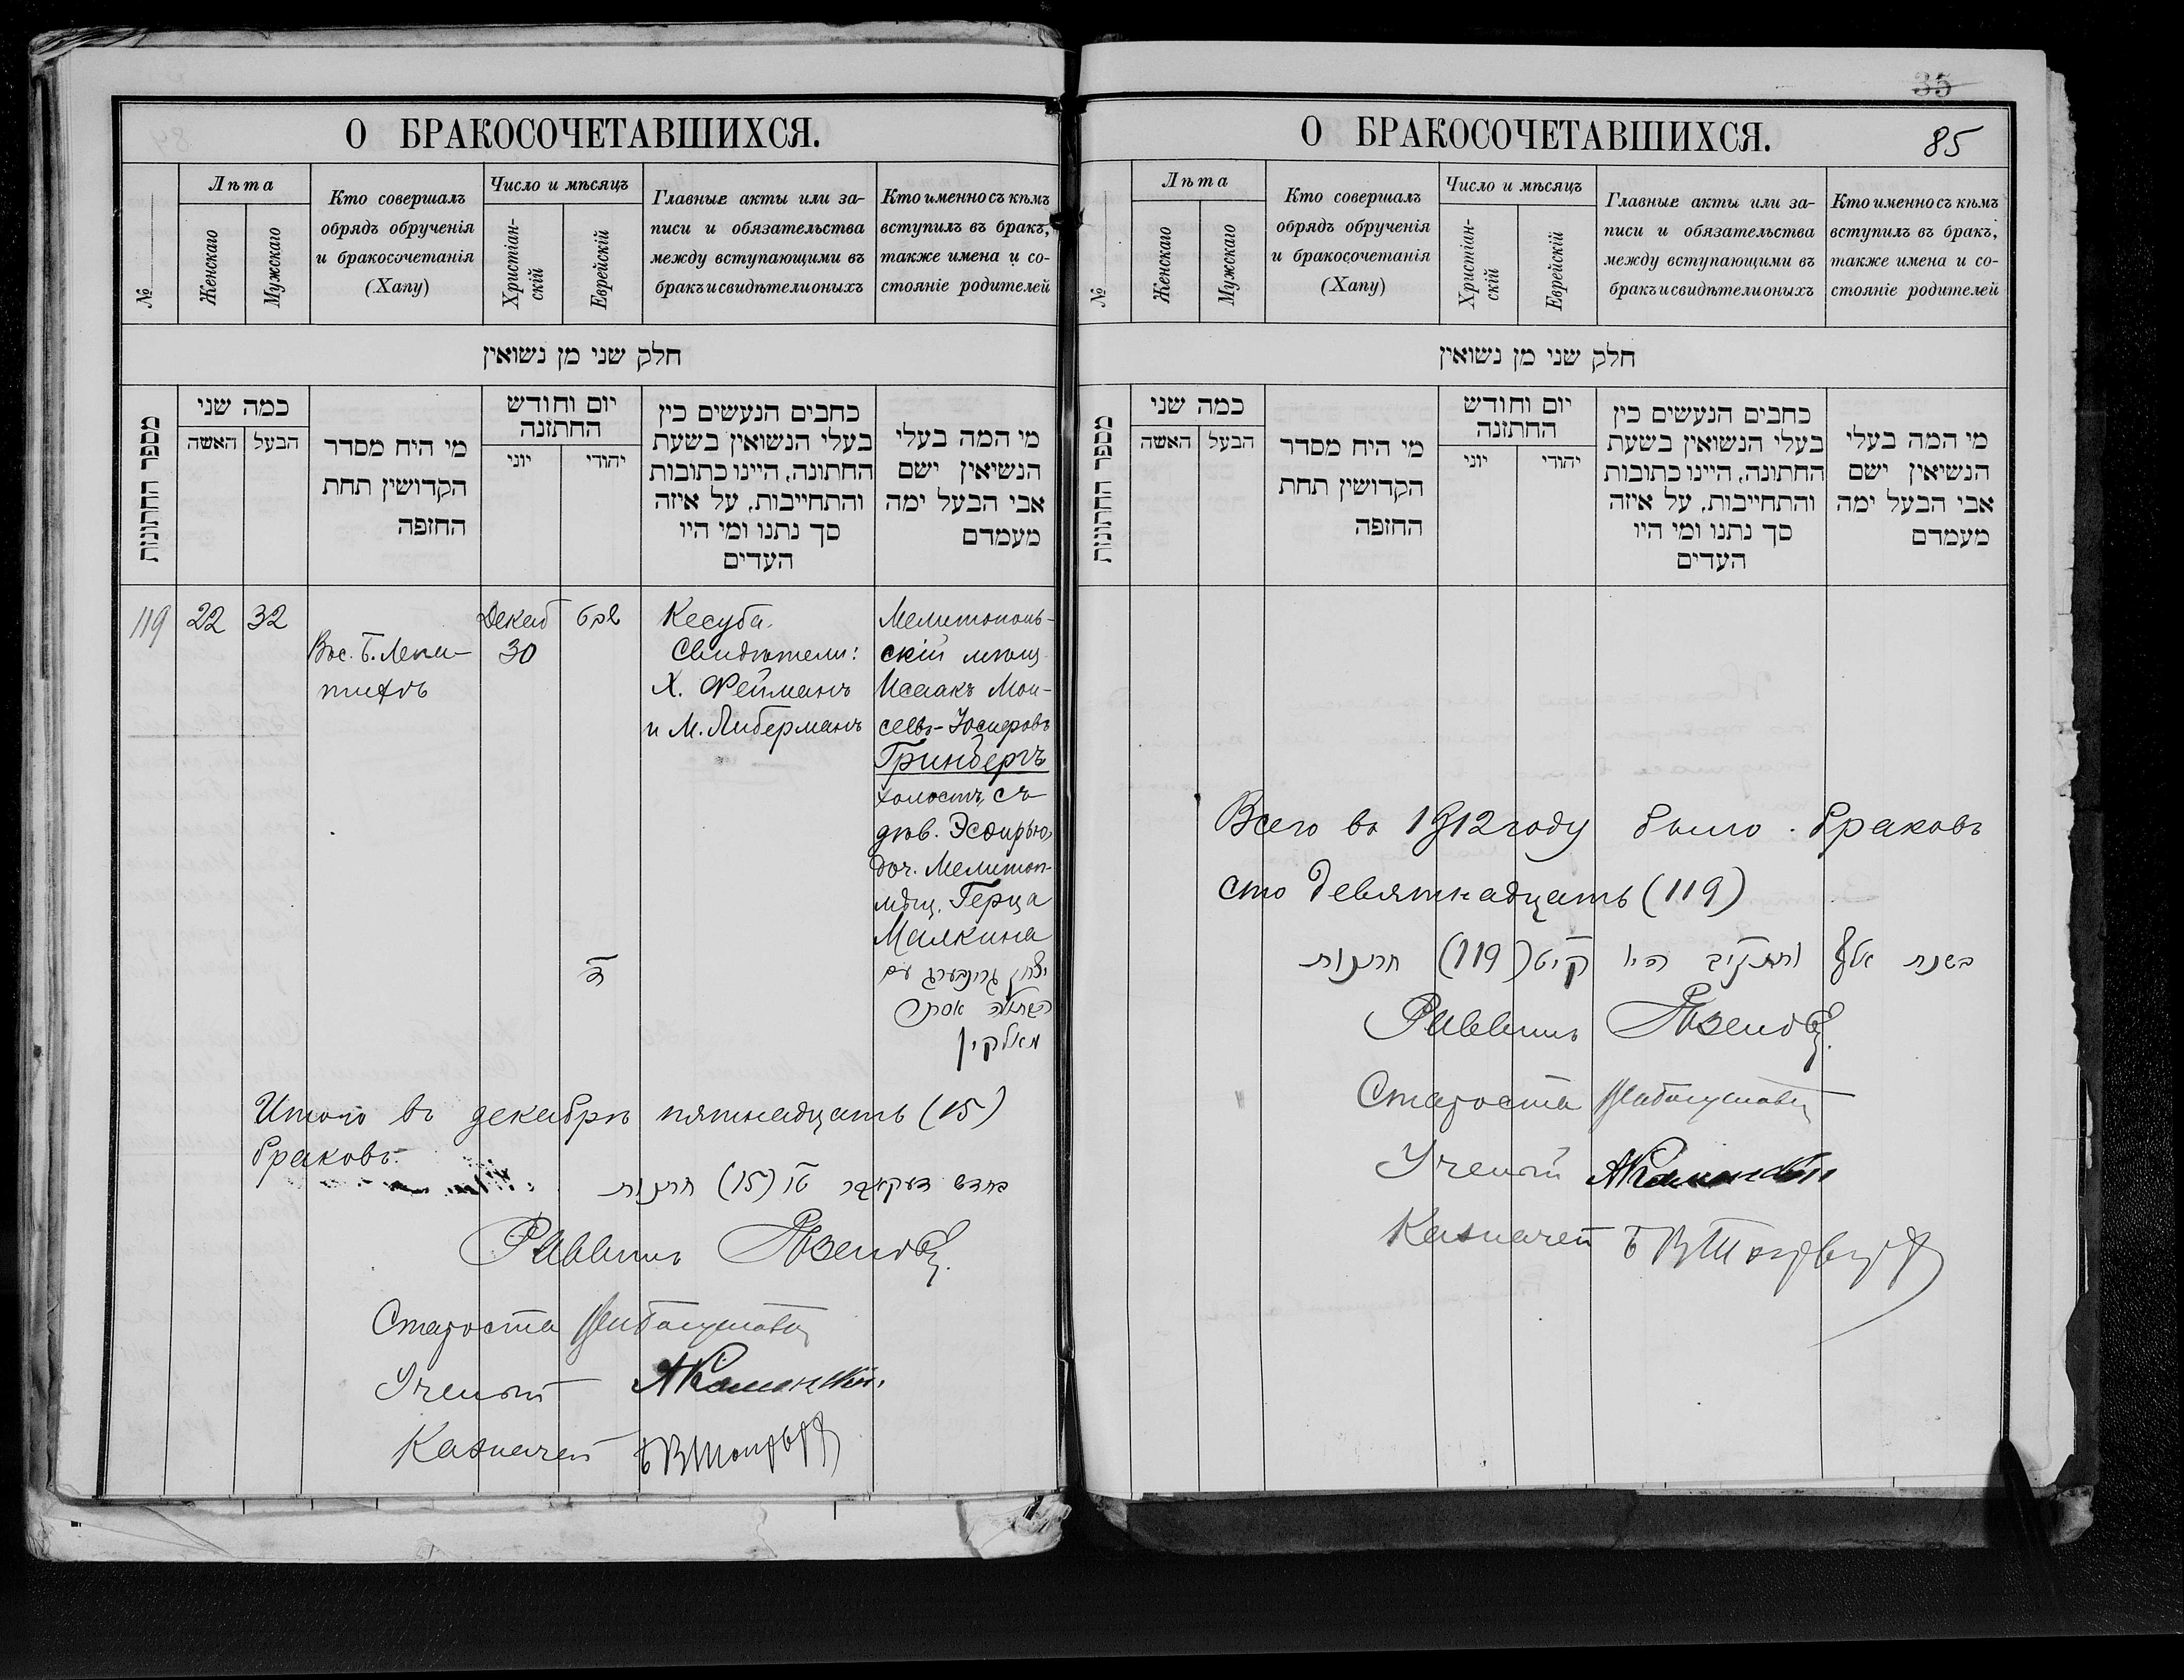 О БРАКОСОЧЕТАВШИХСЯ.
№
Лѣта
Женскаго
Мужскаго
Кто совершалъ
обрядъ обрученія
и бракосочетанія
(Хапу)
Число и мѣсяцъ
Христіан-
скій
Еврейскій
Главные акты или за-
писи и обязательства
между вступающими въ
бракъ и свидѣтели оныхъ
Кто именно съ кѣмъ
вступилъ въ бракъ,
также имена и со-
стояніе родителей
חלק שני מן נשואין
מספר החתונות
כמה שני
האשה
הבעל
מי היח מסדר
הקדושין תחת
החזפה
יום וחודש
החתזנה
יוני
יהודי
כחבים הנעשים כין
בעלי הנשואין בשעת
החתונה, היינו כתובות
והתחייבות, על איזה
סך נתנו ומי היו
העדים
מי המה בעלי
הנשיאין ישם
אבי הבעל ימה
מעמדם
119
22
32
Декаб
30
Кесуба.
Свидѣтели:
Х. Фейманъ
и М. Либерманъ
Мелитополь-
скій мѣщ.
Исаакъ Мои-
сеевъ-Іосифовъ
Гринбергъ
холостъ, съ
дѣв. Эсфирью,
доч. Мелитоп-
мѣщ. Герца
Малкина
יצחק גרינבערג עם
הבתולה אסתר
מאלקין
Итого въ декабрѣ пятнадцать (15)
браковъ.
בחדש דעקאבר טו (15) חתונות
Раввинъ
Староста
Ученый АКаменскій.
Казначей
О БРАКОСОЧЕТАВШИХСЯ.
35
85
№
Лѣта
Женскаго
Мужскаго
Кто совершалъ
обрядъ обрученія
и бракосочетанія
(Хапу)
Число и мѣсяцъ
Христіан-
скій
Еврейскій
Главные акты или за-
писи и обязательства
между вступающими въ
бракъ и свидѣтели оныхъ
Кто именно съ кѣмъ
вступилъ въ бракъ,
также имена и со-
стояніе родителей
חלק שני מן נשואין
מספר החתונות
כמה שני
האשה
הבעל
מי היח מסדר
הקדושין תחת
החזפה
יום וחודש
החתזנה
יוני
יהודי
כחבים הנעשים כין
בעלי הנשואין בשעת
החתונה, היינו כתובות
והתחייבות, על איזה
סך נתנו ומי היו
העדים
מי המה בעלי
הנשיאין ישם
אבי הבעל ימה
מעמדם
Всего въ 1912 году было браковъ
сто девятнадцать (119)
בשנת אלף ותתקיב היו קיט (119) חתונות
Раввинъ
Староста
Ученый АКаменскій
Казначей